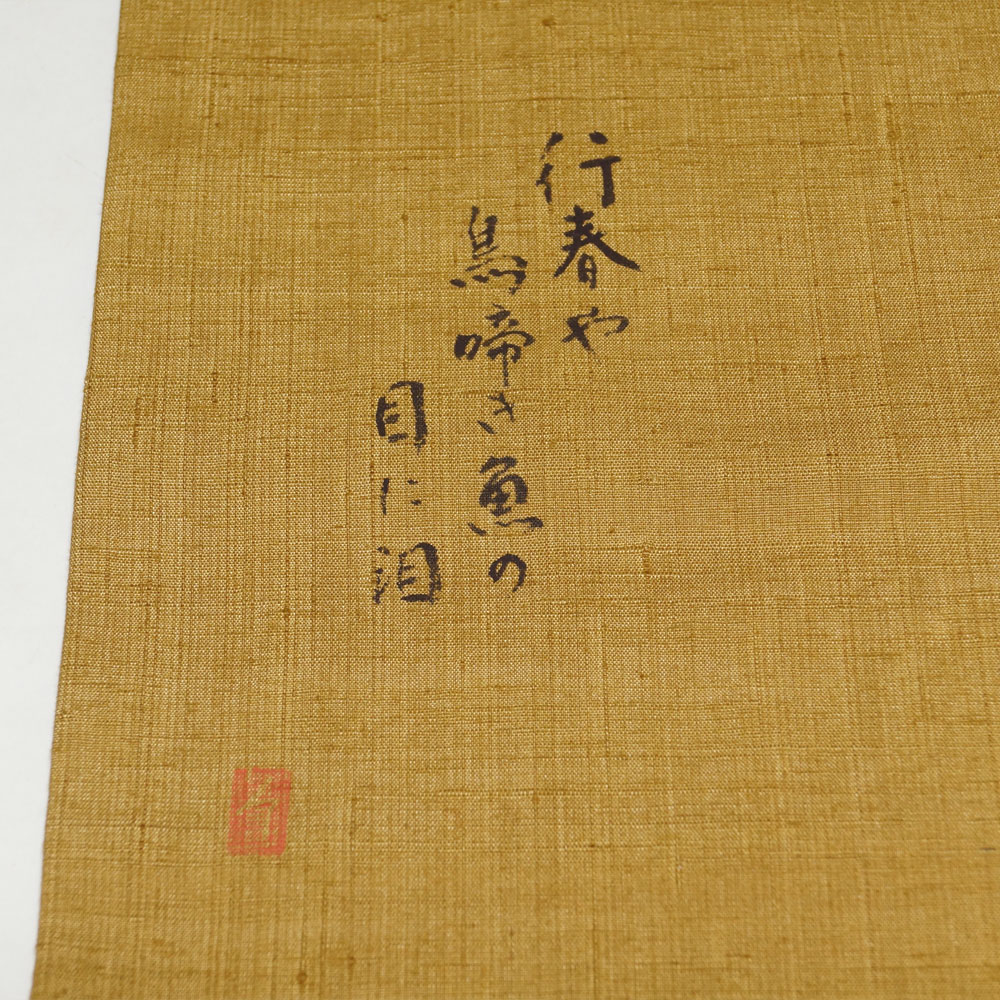 行春や
鳥啼き魚の
目に泪